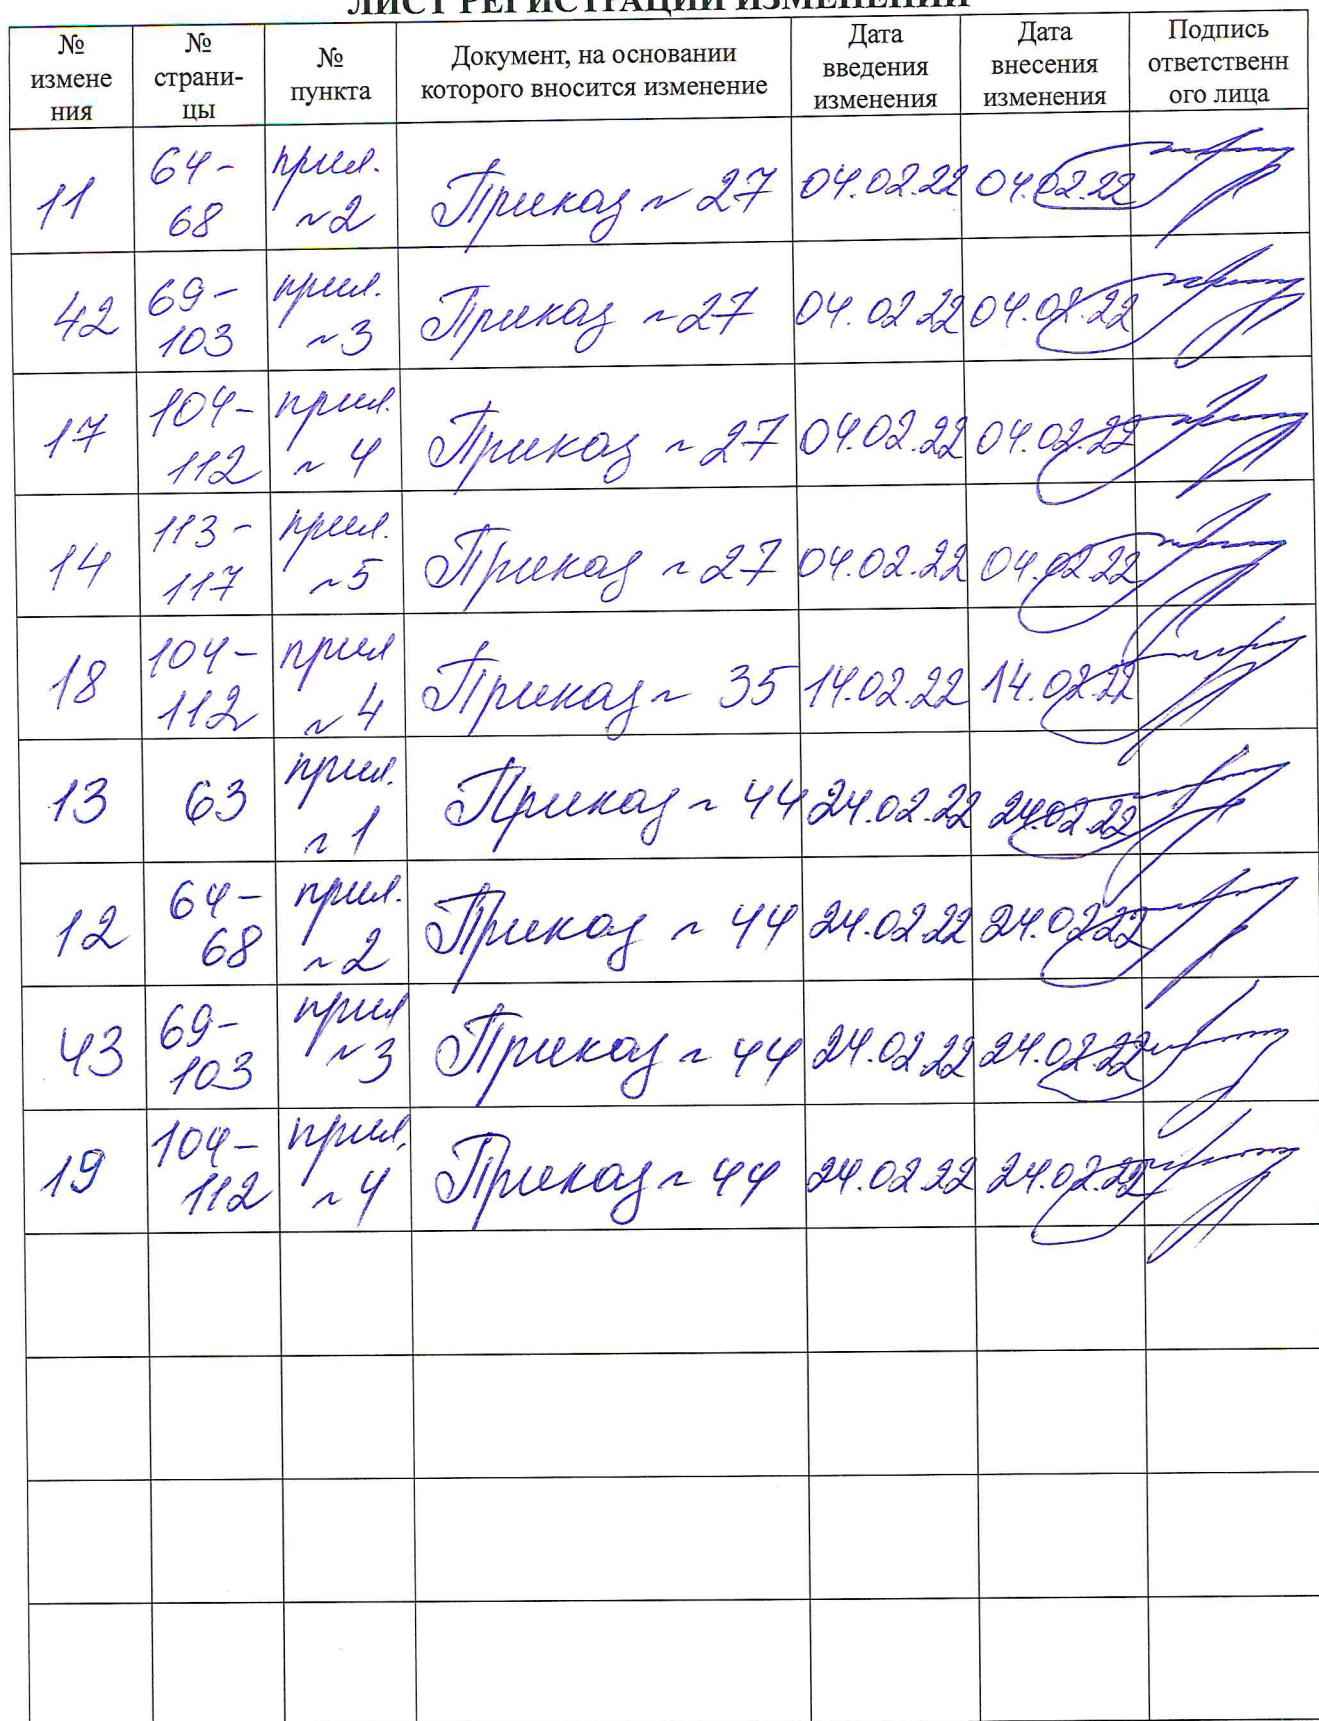 ЛИСТ РЕГИСТРАЦИИ ИЗМЕНЕНИЙ
№ измене ния | № страни- цы | № пункта | Документ, на основании которого вносится изменение | Дата введения изменения | Дата внесения изменения | Подпись ответственн ого лица
11 | 64-68 | прил. ~2 | Приказ ~ 27 | 04.02.22 | 04.02.22
42 | 69-103 | прил. ~3 | Приказ ~27 | 04.02.22 | 04.02.22
17 | 104-112 | прил. ~ 4 | Приказ ~27 | 04.02.22 | 04.02.22
14 | 113-117 | прил. ~5 | Приказ ~27 | 04.02.22 | 04.02.22
18 | 104-112 | прил ~4 | Приказ ~ 35 | 14.02.22 | 14.02.22
13 | 63 | прил. ~1 | Приказ ~ 44 | 24.02.22 | 24.02.22
12 | 64-68 | прил. ~2 | Приказ ~ 44 | 24.02.22 | 24.02.22
43 | 69-103 | прил ~3 | Приказ ~ 44 | 24.02.22 | 24.02.22
19 | 104-112 | прил. ~4 | Приказ ~ 44 | 24.02.22 | 24.02.22